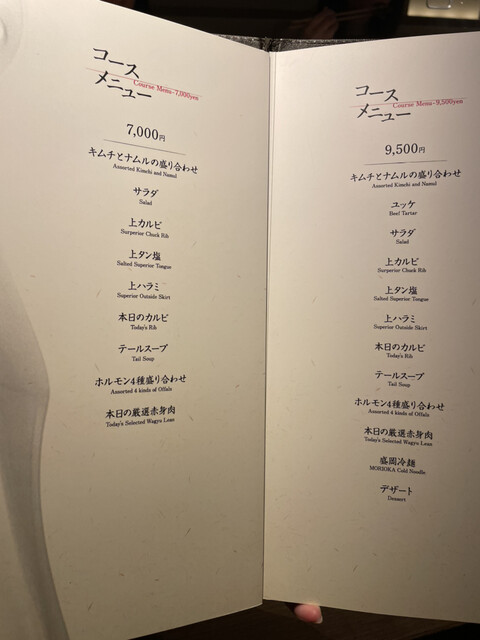 コース
メニュー
Course Menu-7,000yen
7,000円
キムチとナムルの盛り合わせ
Assorted Kimchi and Namul
サラダ
Salad
上カルビ
Surperior Chuck Rib
上タン塩
Salted Superior Tongue
上ハラミ
Superior Outside Skirt
本日のカルビ
Today's Rib
テールスープ
Tail Soup
ホルモン4種盛り合わせ
Assorted 4 kinds of Offals
本日の厳選赤身肉
Today's Selected Wagyu Lean
コース
メニュー
Course Menu-9,500yen
9,500円
キムチとナムルの盛り合わせ
Assorted Kimchi and Namul
ユッケ
Beef Tartar
サラダ
Salad
上カルビ
Surperior Chuck Rib
上タン塩
Salted Superior Tongue
上ハラミ
Superior Outside Skirt
本日のカルビ
Today's Rib
テールスープ
Tail Soup
ホルモン4種盛り合わせ
Assorted 4 kinds of Offals
本日の厳選赤身肉
Today's Selected Wagyu Lean
盛岡冷麺
MORIOKA Cold Noodle
デザート
Dessert